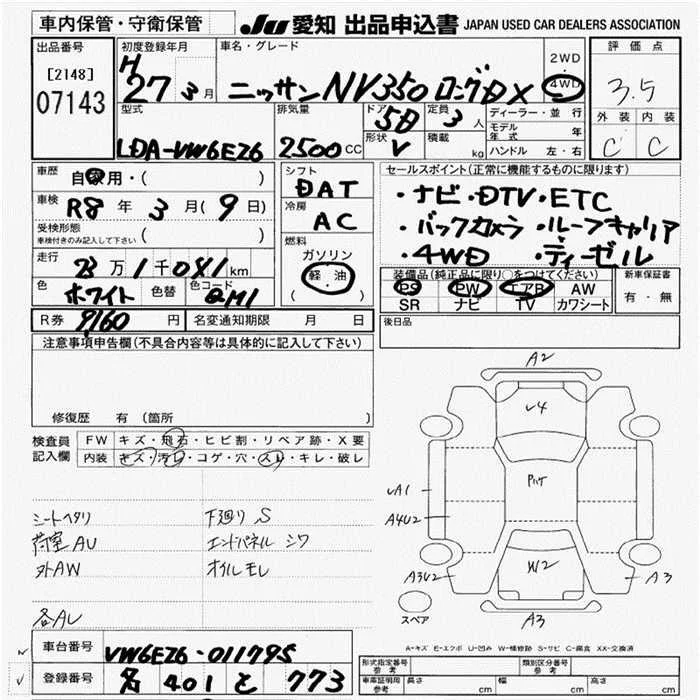 車内保管・守衛保管 JU 愛知 出品申込書 JAPAN USED CAR DEALERS ASSOCIATION
出品番号 初度登録年月 車名・グレード 2WD 評価点
[2148] H 4WD
07143 27 3月 ニッサンNV350 ロングDX 3.5
型式 排気量 ドア 5D 定員 3人 ディーラー・並行 外装 内装
モデル年式 年
LDA-VW6E26 2500CC 形状 V 積載 kg ハンドル 左・右 C C
車歴 自家用・( ) シフト セールスポイント(正常に機能するものに限ります)
DAT ・ナビ・DTV・ETC
車検 R8年3月(9日) 冷房 AC ・バックカメラ・ルーフキャリア
受検形態 ( ) 燃料 ・4WD ・ディーゼル
車検付きのみ記入して下さい ガソリン
走行 万1千041km 軽・油 装備品(純正品に限り○をつけてください) 新車保証書
( ) PS PW エアB AW 有・無
色 ホワイト 色替 色コード QM1 SR ナビ TV カワシート
R券 9160円 名変通知期限 月 日 後日品
注意事項申告欄(不具合内容等は具体的に記入して下さい)
修復歴 有(箇所
検査員 FW キズ・飛石・ヒビ割・リペア跡・X要
記入欄 内装 キズ・汚レ・コゲ・穴・スレ・キレ・破レ
シートヘタリ 下廻りS
荷室AU エンドパネルシワ
外AW オイルモレ
各AL
A2
V4
A1
A4U2
W2
A3U2 A3
スペア A3
A-キズ E-エクボ U-凹み W-補修跡 S-サビ C-腐食 XX-交換済
車台番号 VW6E26-011795 型式指定番号 参考 類別区分番号 参考
登録番号 名 401 と 773 車庫証明用 参考 長さ cm 幅 cm 高さ cm